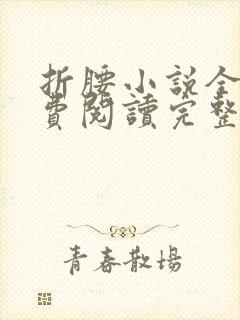 折腰小说全
費閱讀完整
青春散場